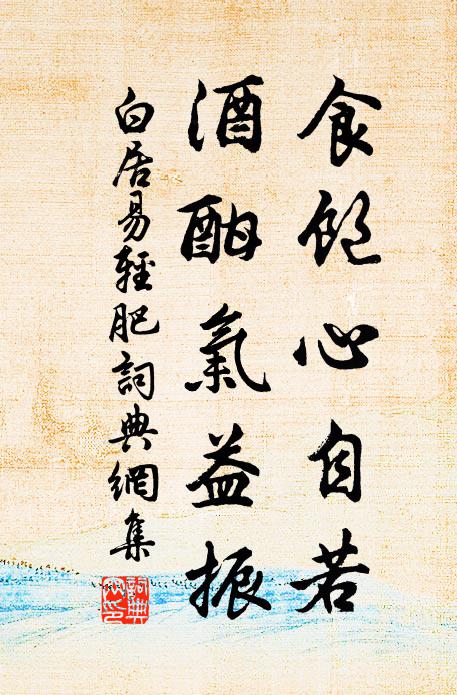 食飽心自若
酒酣氣益振
白居易輕肥詞典網集